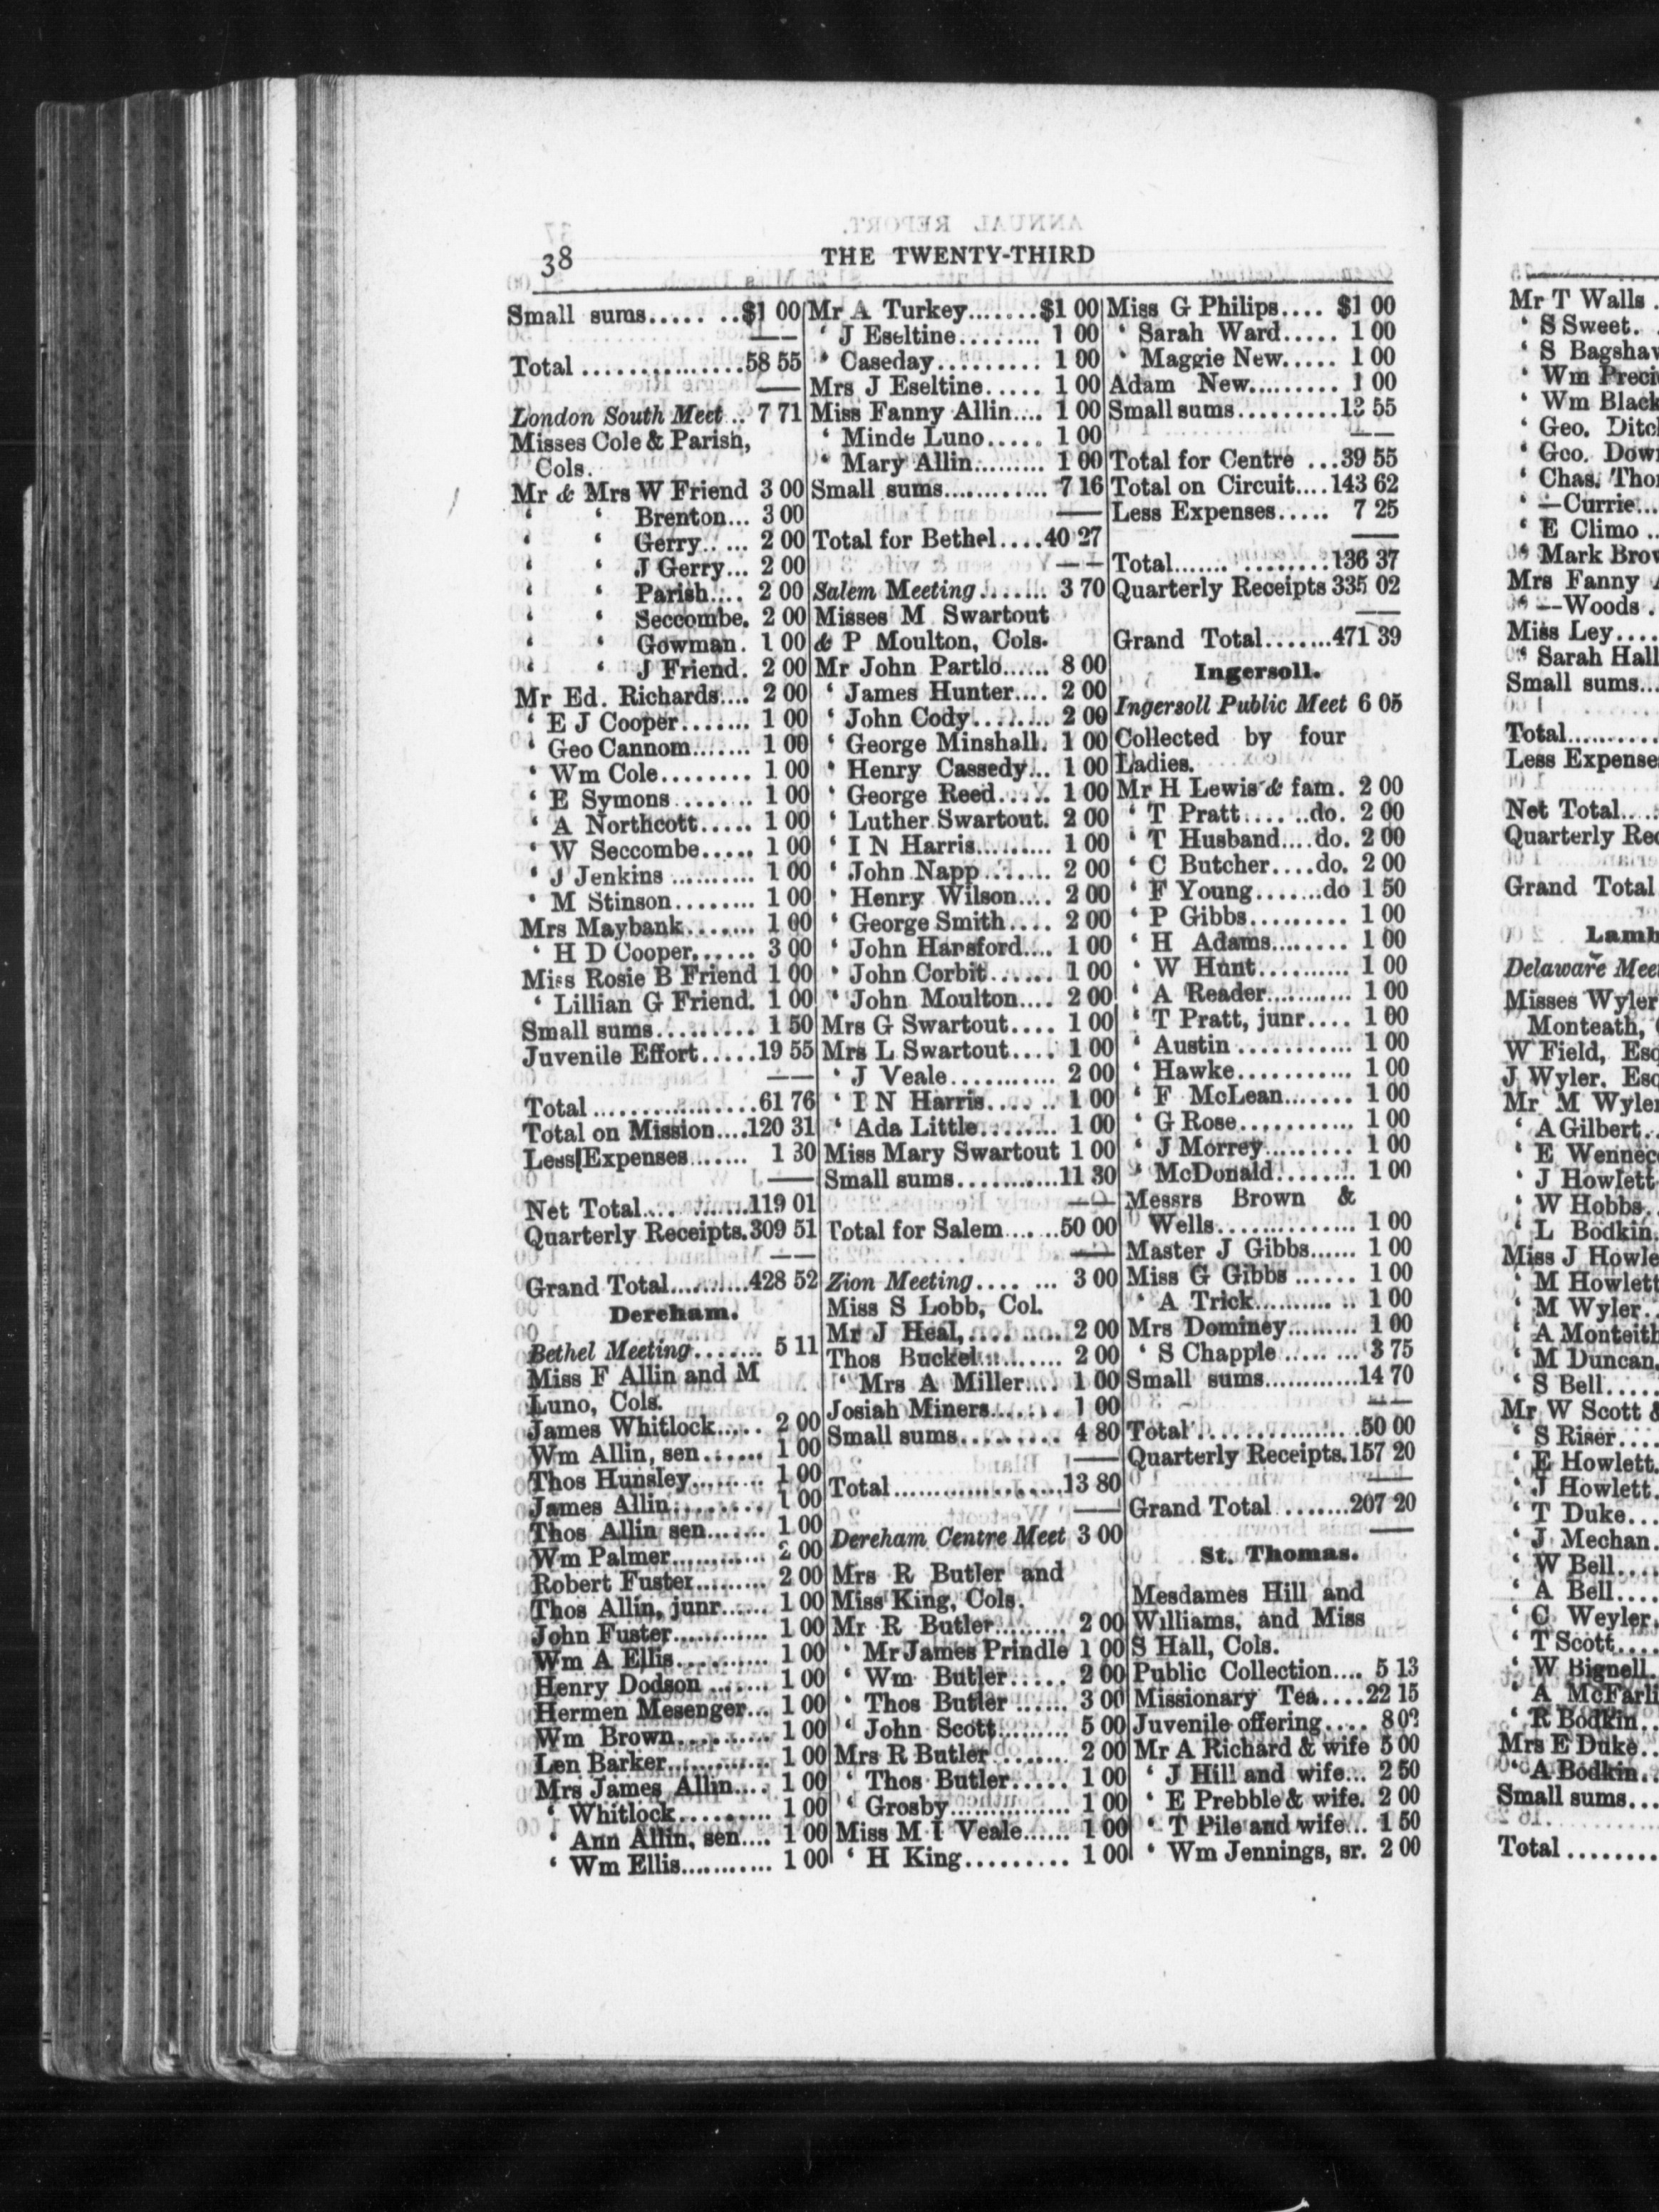 38
THE TWENTY-THIRD
Small sums..... ..$1 00
Total ................58 55
London South Meet .. 7 71
Misses Cole & Parish,
Cols.
Mr & Mrs W Friend 3 00
‘ ‘ Brenton... 3 00
‘ ‘ Gerry.. ... 2 00
‘ ‘ J Gerry... 2 00
‘ ‘ Parish.... 2 00
‘ ‘ Seccombe. 2 00
‘ ‘ Gowman. 1 00
‘ ‘ J Friend. 2 00
Mr Ed. Richards.... 2 00
‘ E J Cooper....... 1 00
‘ Geo Cannom....... 1 00
‘ Wm Cole........ 1 00
‘ E Symons ....... 1 00
‘ A Northcott..... 1 00
‘ W Seccombe..... 1 00
‘ J Jenkins .......... 1 00
‘ M Stinson......... 1 00
Mrs Maybank....... 1 00
‘ H D Cooper...... 3 00
Miss Rosie B Friend 1 00
‘ Lillian G Friend. 1 00
Small sums......... 1 50
Juvenile Effort.....19 55
Total ................61 76
Total on Mission....120 31
Less Expenses....... 1 30
Net Total.... .......119 01
Quarterly Receipts.309 51
Grand Total..........428 52
Dereham.
Bethel Meeting....... 5 11
Miss F Allin and M
Luno, Cols.
James Whitlock..... 2 00
Wm Allin, sen...... 1 00
Thos Hunsley........ 1 00
James Allin......... 1 00
Thos Allin sen....... 1 00
Wm Palmer............ 2 00
Robert Fuster......... 2 00
Thos Allin, junr...... 1 00
John Fuster............ 1 00
Wm A Ellis.......... 1 00
Henry Dodson ....... 1 00
Hermen Mesenger... 1 00
Wm Brown.......... 1 00
Len Barker............. 1 00
Mrs James Allin.... 1 00
‘ Whitlock.......... 1 00
‘ Ann Allin, sen.... 1 00
‘ Wm Ellis........... 1 00
Mr A Turkey.......$1 00
‘ J Eseltine........ 1 00
‘ Caseday.......... 1 00
Mrs J Eseltine..... 1 00
Miss Fanny Allin.... 1 00
‘ Minde Luno..... 1 00
‘ Mary Allin......... 1 00
Small sums............ 7 16
Total for Bethel....40 27
Salem Meeting....... 3 70
Misses M Swartout
& P Moulton, Cols.
Mr John Partlo...... 8 00
‘ James Hunter.... 2 00
‘ John Cody........ 2 00
‘ George Minshall. 1 00
‘ Henry Cassedy... 1 00
‘ George Reed..... 1 00
‘ Luther Swartout. 2 00
‘ I N Harris.......... 1 00
‘ John Napp....... 2 00
‘ Henry Wilson.... 2 00
‘ George Smith.... 2 00
‘ John Harsford.... 1 00
‘ John Corbit...... 1 00
‘ John Moulton.... 2 00
Mrs G Swartout.... 1 00
Mrs L Swartout.... 1 00
‘ J Veale........... 2 00
‘ I N Harris..... .. 1 00
‘ Ada Little........ 1 00
Miss Mary Swartout 1 00
Small sums...........11 30
Total for Salem......50 00
Zion Meeting.... ... 3 00
Miss S Lobb, Col.
Mr J Heal,..........2 00
Thos Buckel......... 2 00
‘ Mrs A Miller.... 1 00
Josiah Miners....... 1 00
Small sums.......... 4 80
Total...................13 80
Dereham Centre Meet 3 00
Mrs R Butler and
Miss King, Cols.
Mr R Butler......... 2 00
‘ Mr James Prindle 1 00
‘ Wm Butler..... 2 00
‘ Thos Butler ...... 3 00
‘ John Scott......... 5 00
Mrs R Butler ....... 2 00
‘ Thos Butler..... 1 00
‘ Grosby............... 1 00
Miss M I Veale...... 1 00
‘ H King.......... 1 00
Miss G Philips.... $1 00
‘ Sarah Ward..... 1 00
‘ Maggie New..... 1 00
Adam New......... 1 00
Small sums.........13 55
Total for Centre ...39 55
Total on Circuit....143 62
Less Expenses..... 7 25
Total....... ........136 37
Quarterly Receipts 335 02
Grand Total.......471 39
Ingersoll.
Ingersoll Public Meet 6 05
Collected by four
Ladies.
Mr H Lewis & fam. 2 00
‘ T Pratt.... ..do. 2 00
‘ T Husband....do. 2 00
‘ C Butcher....do. 2 00
‘ F Young.......do 1 50
‘ P Gibbs......... 1 00
‘ H Adams........ 1 00
‘ W Hunt.......... 1 00
‘ A Reader........... 1 00
‘ T Pratt, junr.... 1 00
‘ Austin ........... 1 00
‘ Hawke........... 1 00
‘ F McLean....... 1 00
‘ G Rose........... 1 00
‘ J Morrey......... 1 00
‘ McDonald........ 1 00
Messrs Brown &
Wells.............. 1 00
Master J Gibbs...... 1 00
Miss G Gibbs ...... 1 00
‘ A Trick.......... .. 1 00
Mrs Dominey......... 1 00
‘ S Chapple ..... ... 3 75
Small sums............14 70
Total ..................50 00
Quarterly Receipts.157 20
Grand Total .......207 20
St. Thomas.
Mesdames Hill and
Williams, and Miss
S Hall, Cols.
Public Collection.... 5 13
Missionary Tea....22 15
Juvenile offering.... 8 0
Mr A Richard & wife 5 00
‘ J Hill and wife... 2 50
‘ E Prebble & wife. 2 00
‘ T Pile and wife... 1 50
‘ Wm Jennings, sr. 2 00
Mr T Walls .
‘ S Sweet.
‘ S Bagshaw
‘ Wm Preci
‘ Wm Black
‘ Geo. Ditc
‘ Geo. Down
‘ Chas. Tho
‘ —Currie...
‘ E Climo ..
‘ Mark Brow
Mrs Fanny A
‘ —Woods .
Miss Ley....
‘ Sarah Hall
Small sums...
Total.........
Less Expense
Net Total....
Quarterly Rec
Grand Total
Lamb
Delaware Mee
Misses Wyler
Monteath,
W Field, Esq
J Wyler, Esq
Mr M Wyler
‘ A Gilbert..
‘ E Wennec
‘ J Howlett
‘ W Hobbs..
‘ L Bodkin.
Miss J Howle
‘ M Howlett
‘ M Wyler..
‘ A Monteith
‘ M Duncan,
‘ S Bell.....
Mr W Scott &
‘ S Riser....
‘ E Howlett.
‘ J Howlett.
‘ T Duke...
‘ J Mechan.
‘ W Bell....
‘ A Bell....
‘ C Weyler.
‘ T Scott....
‘ W Bignell.
‘ A McFarli
‘ R Bodkin..
Mrs E Duke..
‘ A Bodkin..
Small sums...
Total ........